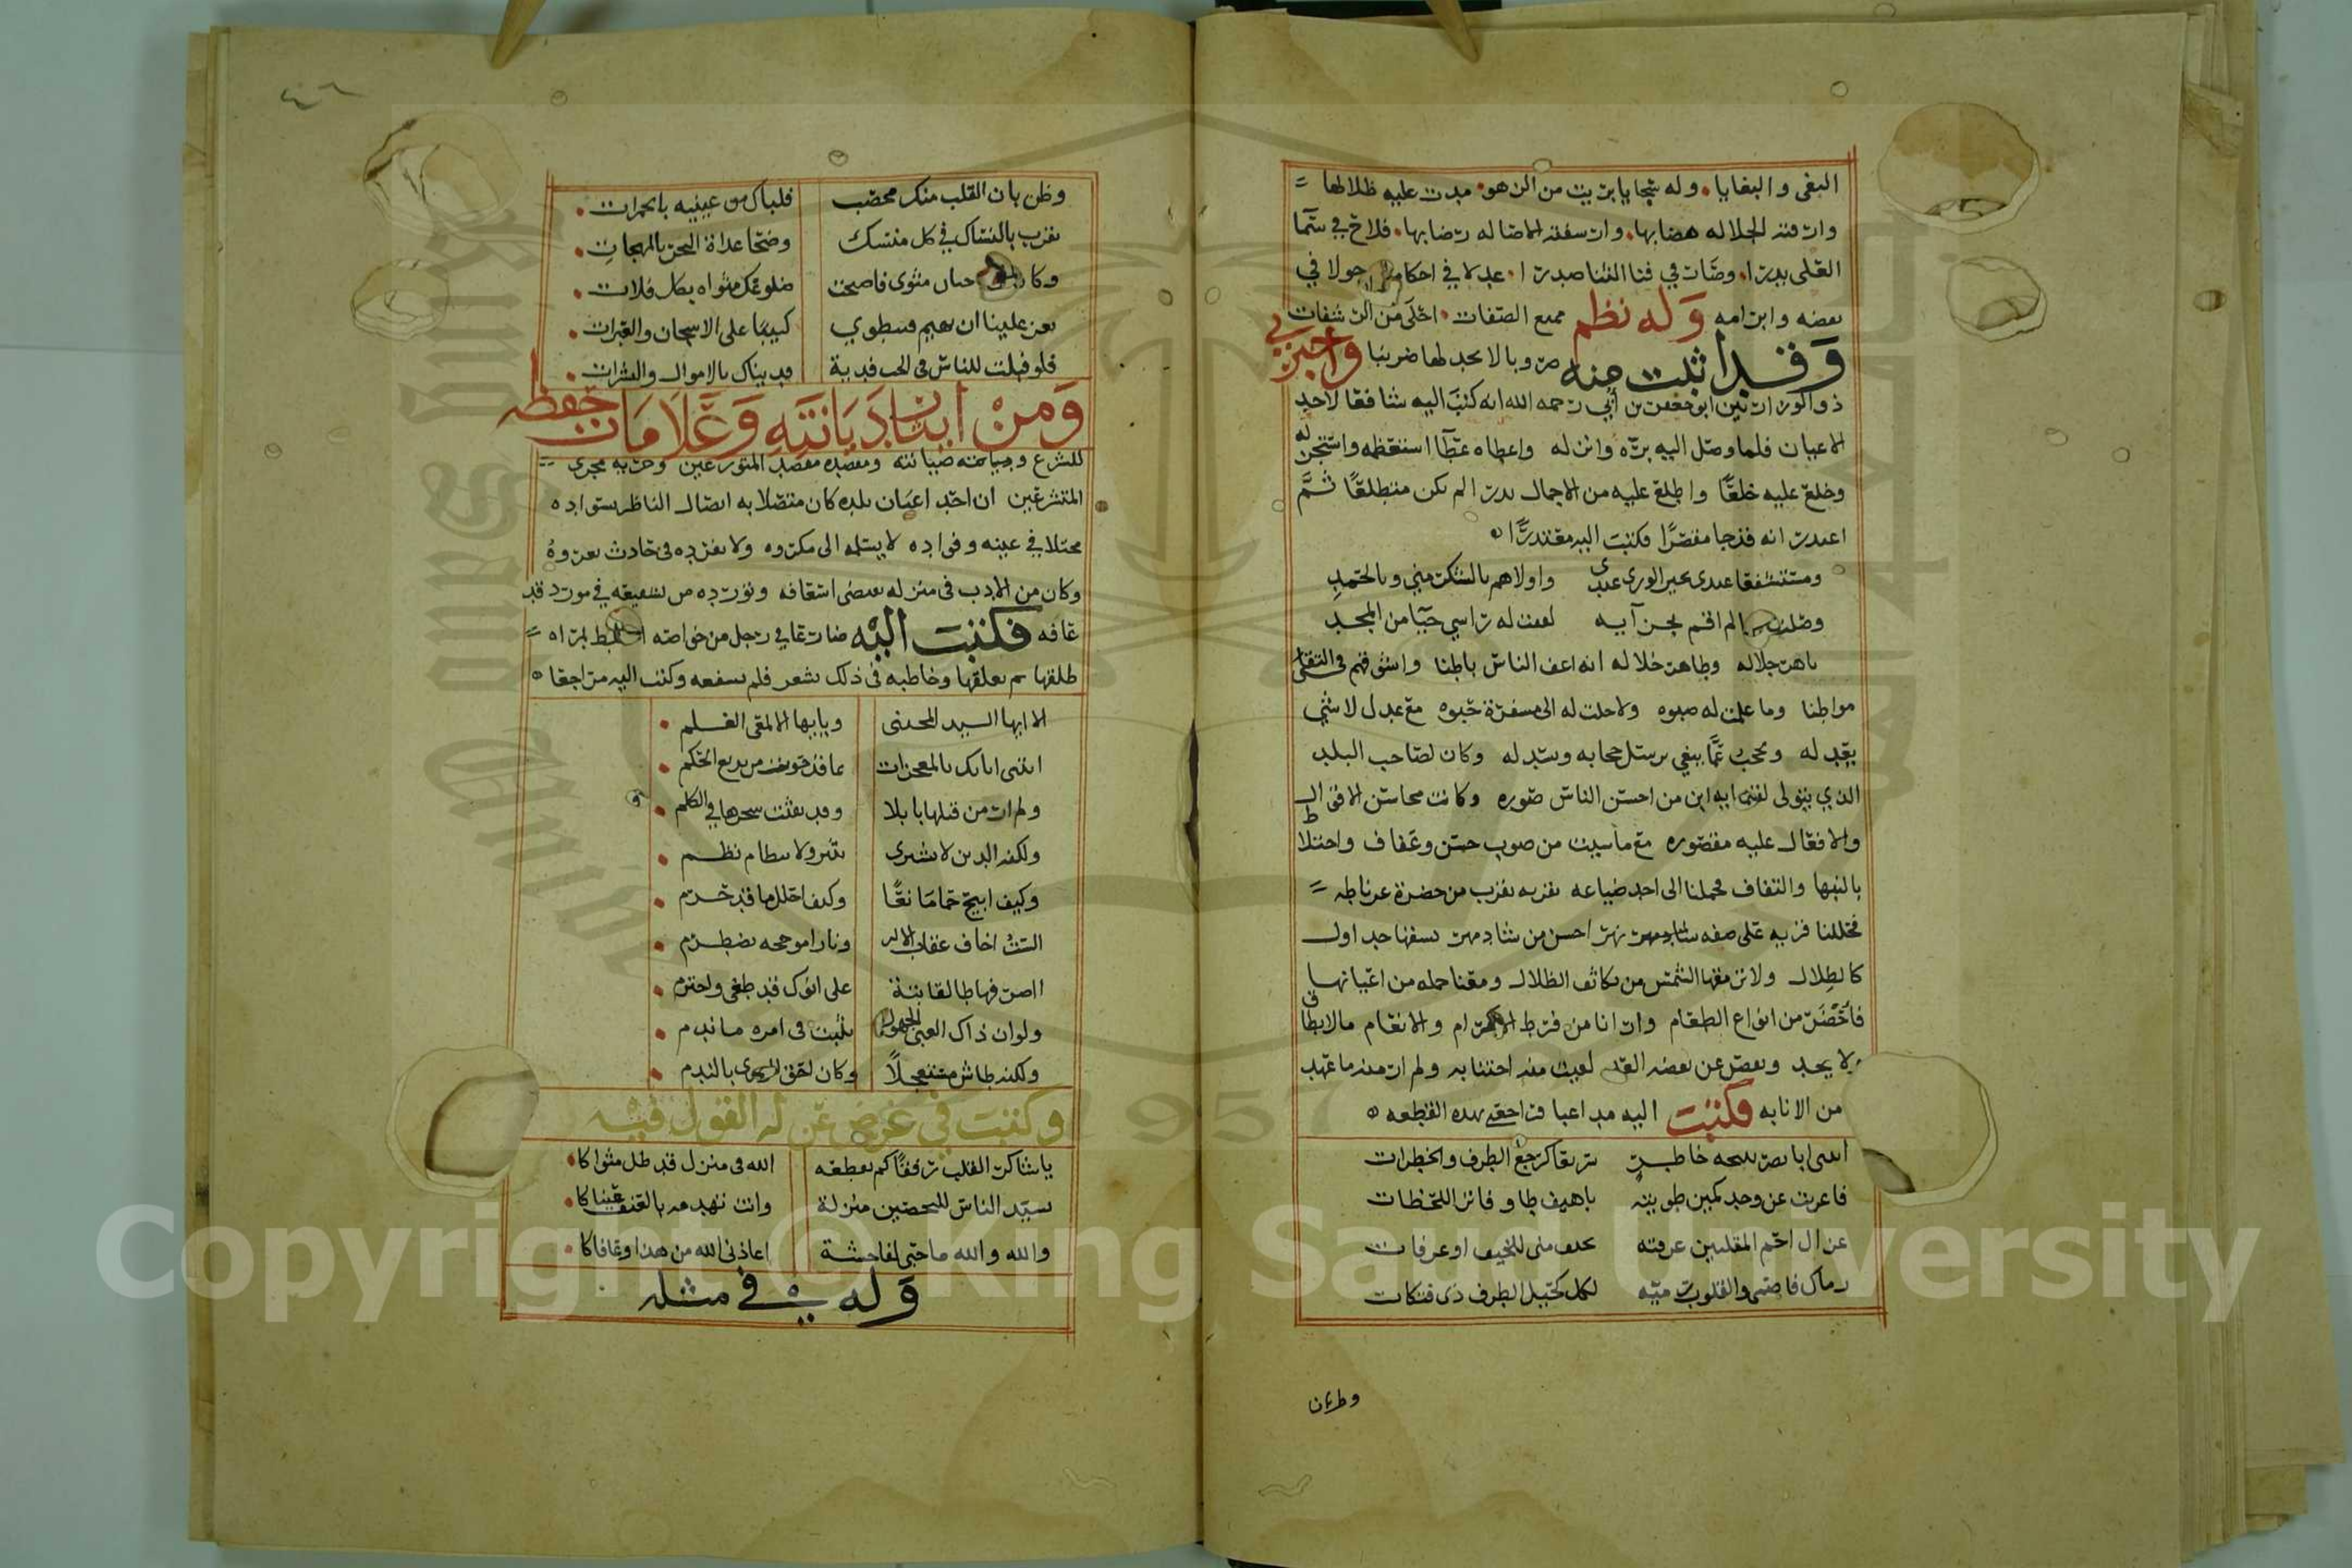 البغى والبغايا وله سجايا بريت من الزهو مدت عليه ظلالها
وارقته الجلاله هضابها وارسفته الاصاله رضابها فلاح في سما
العلى بدرا وضات في فنا الثنا صدرا عدلا في احكامه جولا في
نقضه وابرامه وله نظم ممتع الصفات احلى من الرشفات
وقد اثبت منه ضروبا لا تجد لها ضريبا واخبرني
ذو الوزارتين ابو جعفر بن ابي رحمه الله انه كتب اليه شافعا لاحد
الاعيان فلما وصل اليه بره وانزله واعطاه عطا استعظمه واستجزله
وخلع عليه خلعا واطلع عليه من الاجمال بدرا لم يكن متطلعا ثم
اعتدر انه قد جا مقصرا فكتبت اليه معتدرا
ومستشفعا عندى بخير الورى عندى واولاهم بالشكر مني وبالحمد
وصلت لما لم اقم بجزآيه لففت له راسي حيا من المجد
باهر جلاله وطاهر خلاله انه اعف الناس باطنا واشرفهم في التقى
مواطنا وما علمت له صبوه ولا حلت له الى مسفرة حبوه مع عدل لا شي
يعدله وتحجب عما يبغي يرسل حجابه وسدله وكان لصاحب البلد
الذي يتولى لقضايه ابن من احسن الناس صوره وكانت محاسن الاقوال
والافعال عليه مقصوره مع ما شيت من صوب حسن وعفاف واختلاط
بالنبها والتفاف فحملنا الى احد ضياعه بقربه بقرب من حضرة غرناطه
فحللنا قريه على صفه شاد مهر نهر احسن من شاد مهر نسفنها جداول
كالطلال ولا ترمقها الشمس من تكاثف الظلال ومعنا جمله من اعيانها
فاحضر من انواع الطعام وارانا من فرط الاكرام والانعام ما لا يطاق
ولا يحد ويقصر عن بعضه العد لعبث منه اجتنابه ولم ار منه ما عهد
من الانابه فكتبت اليه مداعبا فراجعني بهذه القطعه
اتتنى ابا نصر نتيجه خاطر سريع كرجع الطرف والخطرات
فاعربت عن وجد كمين طويته باهيف طاو فاتر اللحظات
غزال احم المقلتين عرفته بخيف منى للخيف او عرفات
رماك فاصمى والقلوب رميه لكل كحيل الطرف ذى فتكات
وظن بان
وظن بان القلب منك محصب فلباك من عينيه بالجمرات
تقرب بالنساك في كل منسك وضحا غداة النحر بالمهجات
وكانت له جيان مثوى فاصبحت ضلوعك مثواه بكل فلات
يعز علينا ان تهيم فتنطوي كييبا على الاشجان والعبرات
فلو قبلت للناس فى الحب فدية فديناك بالاموال والبشرات
ومن ابنا ديانته وعلامات حفظه
للشرع وصيانته وقصده مقصد المتورعين وجريه مجرى
المتشرعين ان احد اعيان بلده كان متصلا به اتصال الناظر بسواده
محتلا في عينه وفواده لا يسلمه الى مكروه ولا يفرده فى حادث يعروه
وكان من الادب فى منزله يقتضى اسعافه ونورده من تشفيعه في مورد قد
عافه فكتبت اليه ضارعا في رجل من خواصه اختلط بمراه
طلقها ثم تعلقها وخاطبه فى ذلك بشعر فلم يسعفه وكتب اليه مراجعا
الا ايها السيد المجتبى ويايها الالمعى العلم
اتتنى اياتك بالمعجزات بما قد حويت من بديع الحكم
ولم ار من قبلها بابلا وقد نفثت سحرها في الكلم
ولكنه الدين لا يشترى بنثر ولا بنظام نظم
وكيف ابيح حماما نعا وكيف احلل ما قد حرم
الست اخاف عقاب الاله ونارا موججه تضطرم
ااصرفها طالقا بتة على انوك قد طغى واجترم
ولو ان ذاك الغبى الجهول تثبت فى امره ما ندم
ولكنه طاش مستعجلا وكان احق الورى بالندم
وكتبت في غرض عن له القول فيه
يا ساكن القلب رفقا كم تقطعه الله فى منزل قد ظل مثواكا
يشيد الناس للتحصين منزلة وانت تهدمه بالعنف عيناكا
والله والله ما حبى لفاحشة اعاذنى الله من هذا وعافاكا
وله في مثله
Copyright © King Saud University
1957